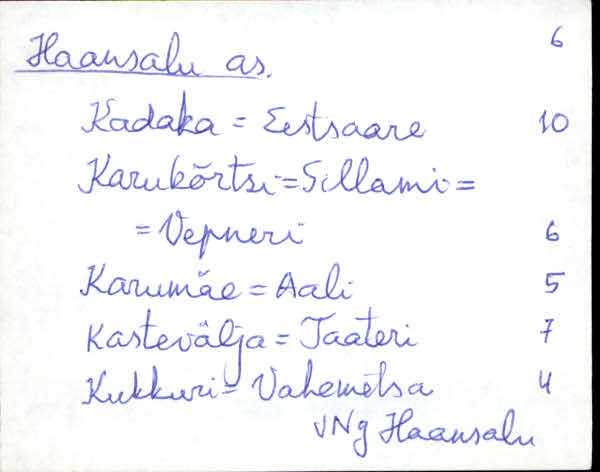 Haansalu as. 6
Kadaka = Eestsaare 10
Karukõrtsi = Sillami =
= Vepneri 6
Karumäe = Aali 5
Kastevälja = Taateri 7
Kukkuri = Vahemetsa 4
VNg Haansalu